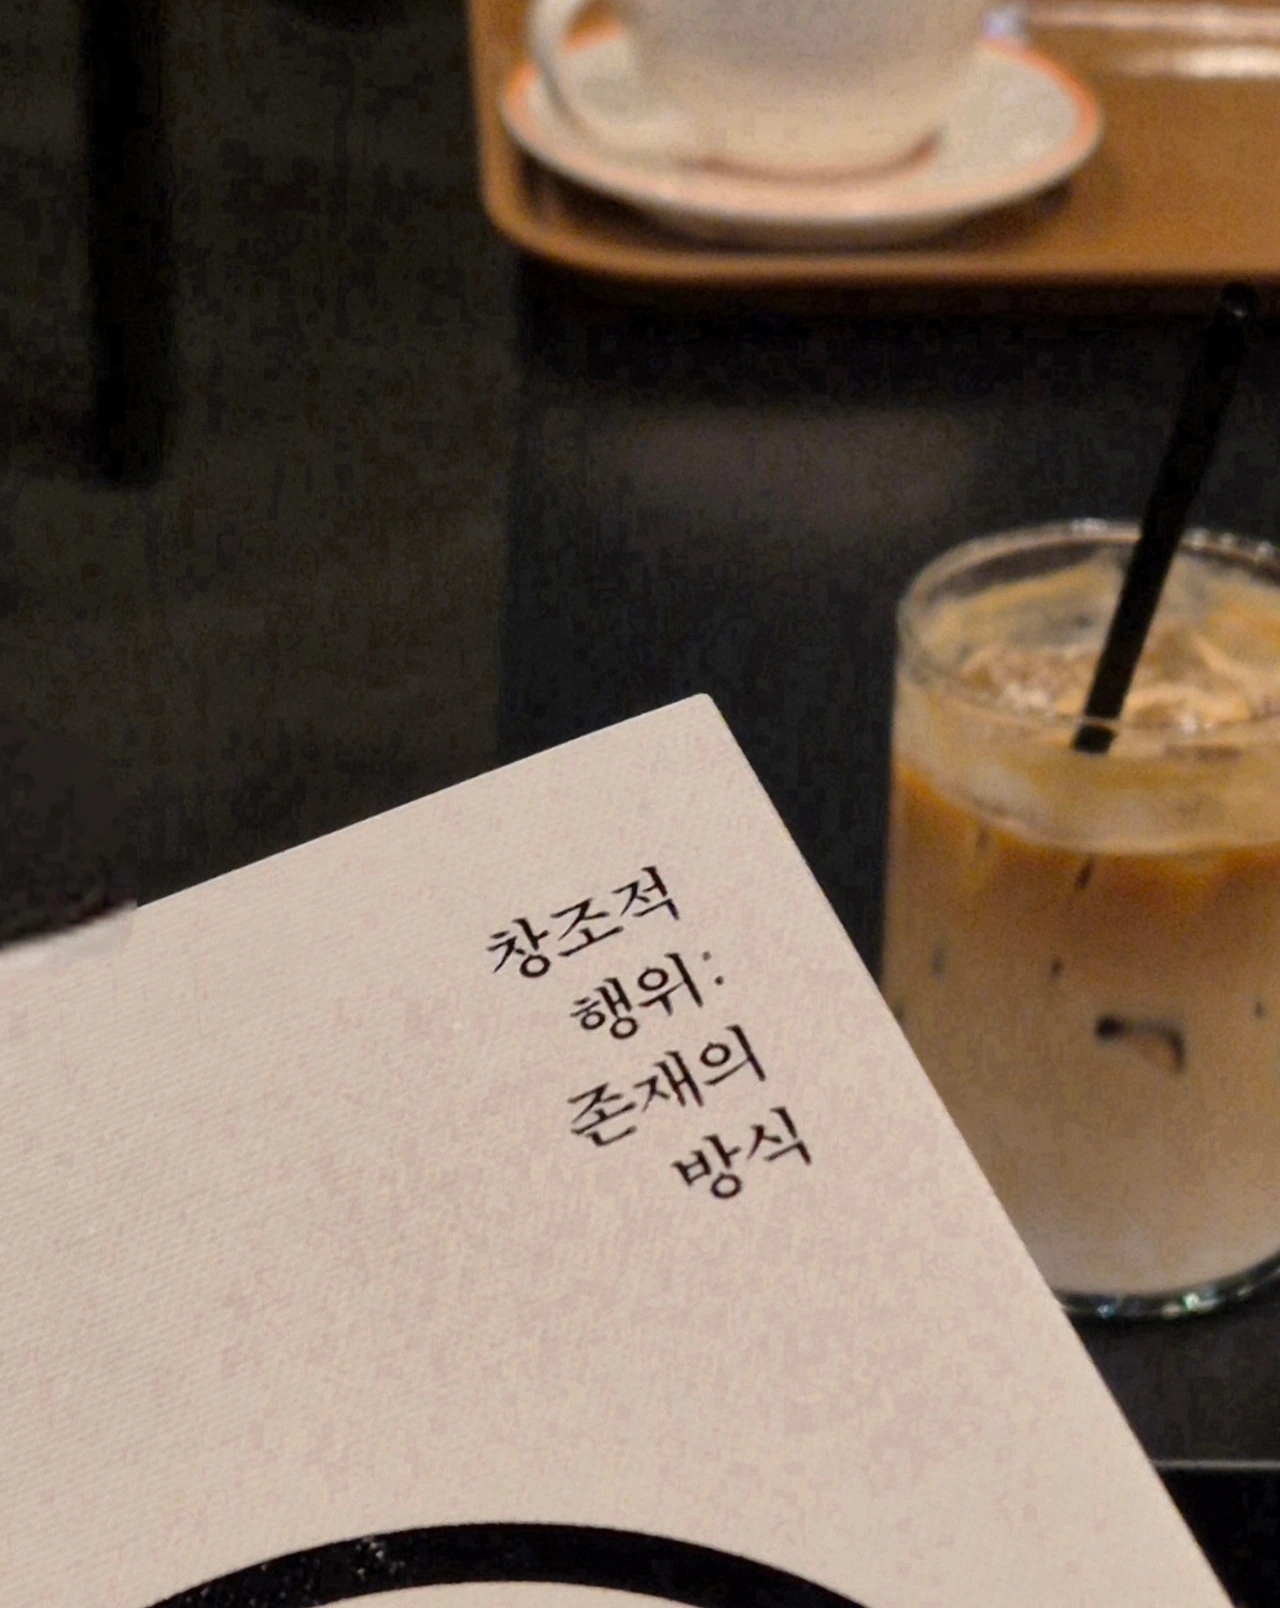 창조적
행위:
존재의
방식